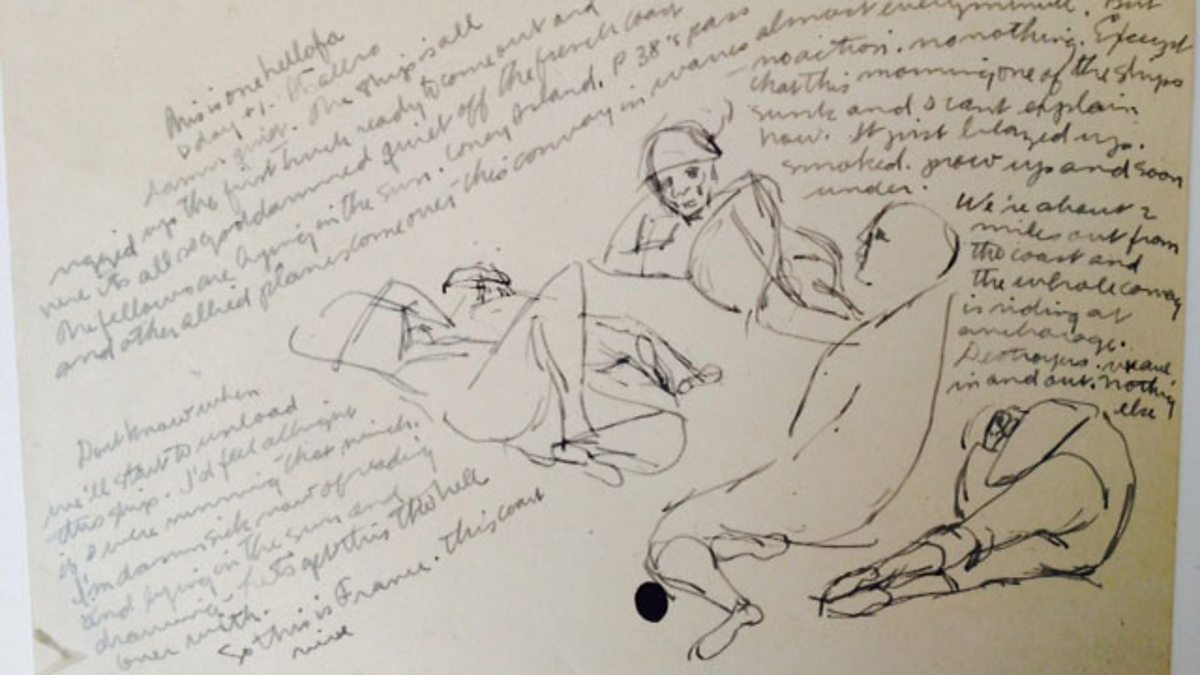 This is one hell of a
D day +1. It all so
damn quiet. The ship is all
rigged up the first truck ready to come out and
were its all so goddamned quiet off the french coast
The fellows are lying in the sun. Coney Island. P 38's pass
and other allied planes come ones this convoy in waves almost every minute. But
- no action. no nothing. Except
that this morning one of the ships
sunk and I cant explain
how. It just blazed up.
smoked. grew up and soon
under.
We're about 2
miles out from
the coast and
the whole convoy
is riding at
anchorage.
Destroyers weave
in and out. nothing
else
Dont know when
we'll start to unload
this ship. I'd feel alright
if I were running that winch.
I'm damn sick now of reading
and lying in the sun and
drawing. Lets get this the hell
over with.
So this is France. This coast
nice